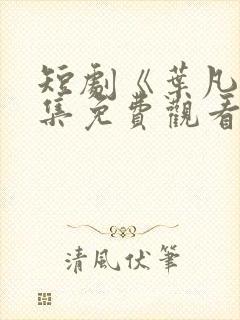 短劇《葉凡
集免費觀看
清風伏筆